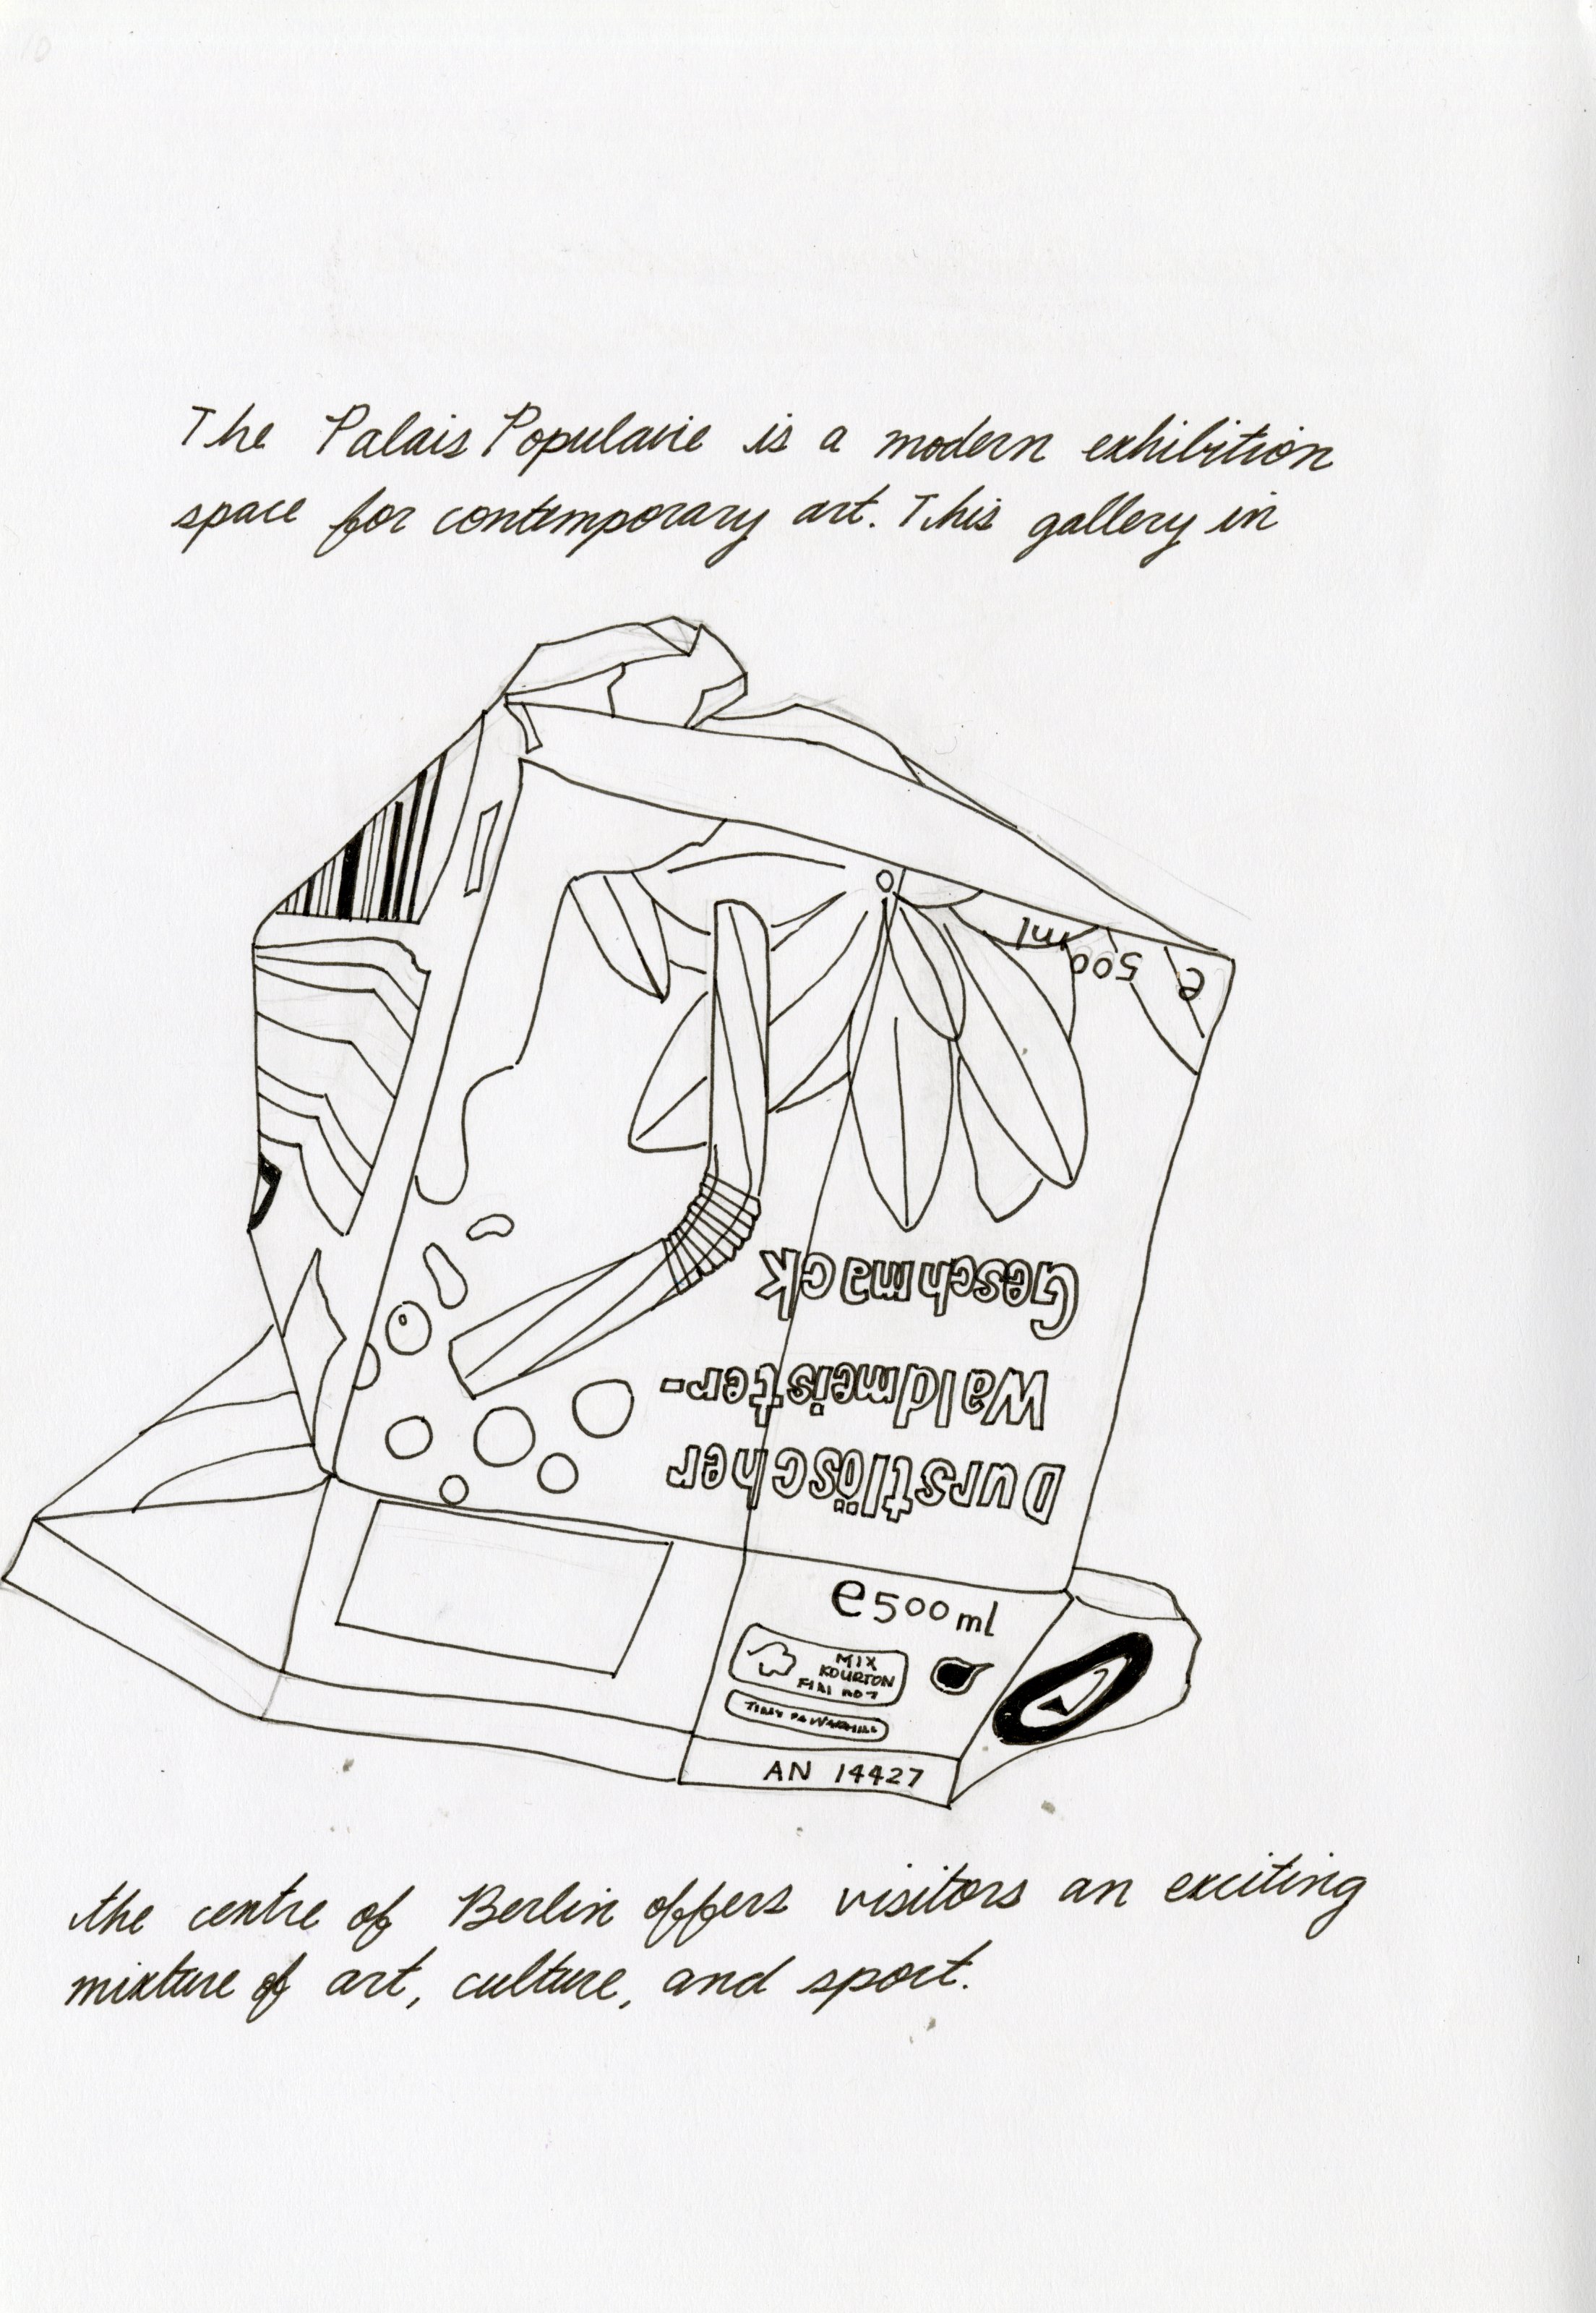 The Palais Populaire is a modern exhibition
space for contemporary art. This gallery in
e 500 ml
Geschmack
Waldmeister-
Durstlöscher
e 500 ml
MIX
AN 14427
the centre of Berlin offers visitors an exciting
mixture of art, culture, and sport.